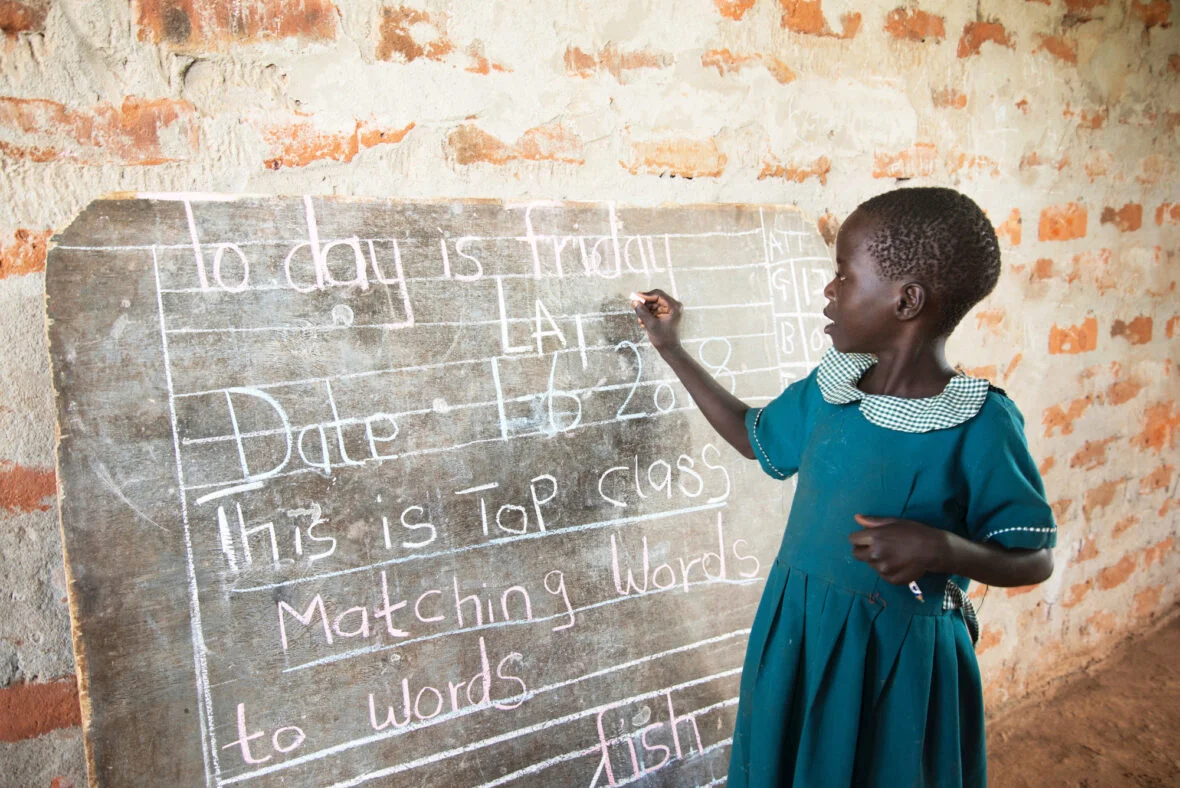 To day is friday
LAT
Date 1-6
This is Top class
Matching Words
to words
fish
ATT
G 17
B